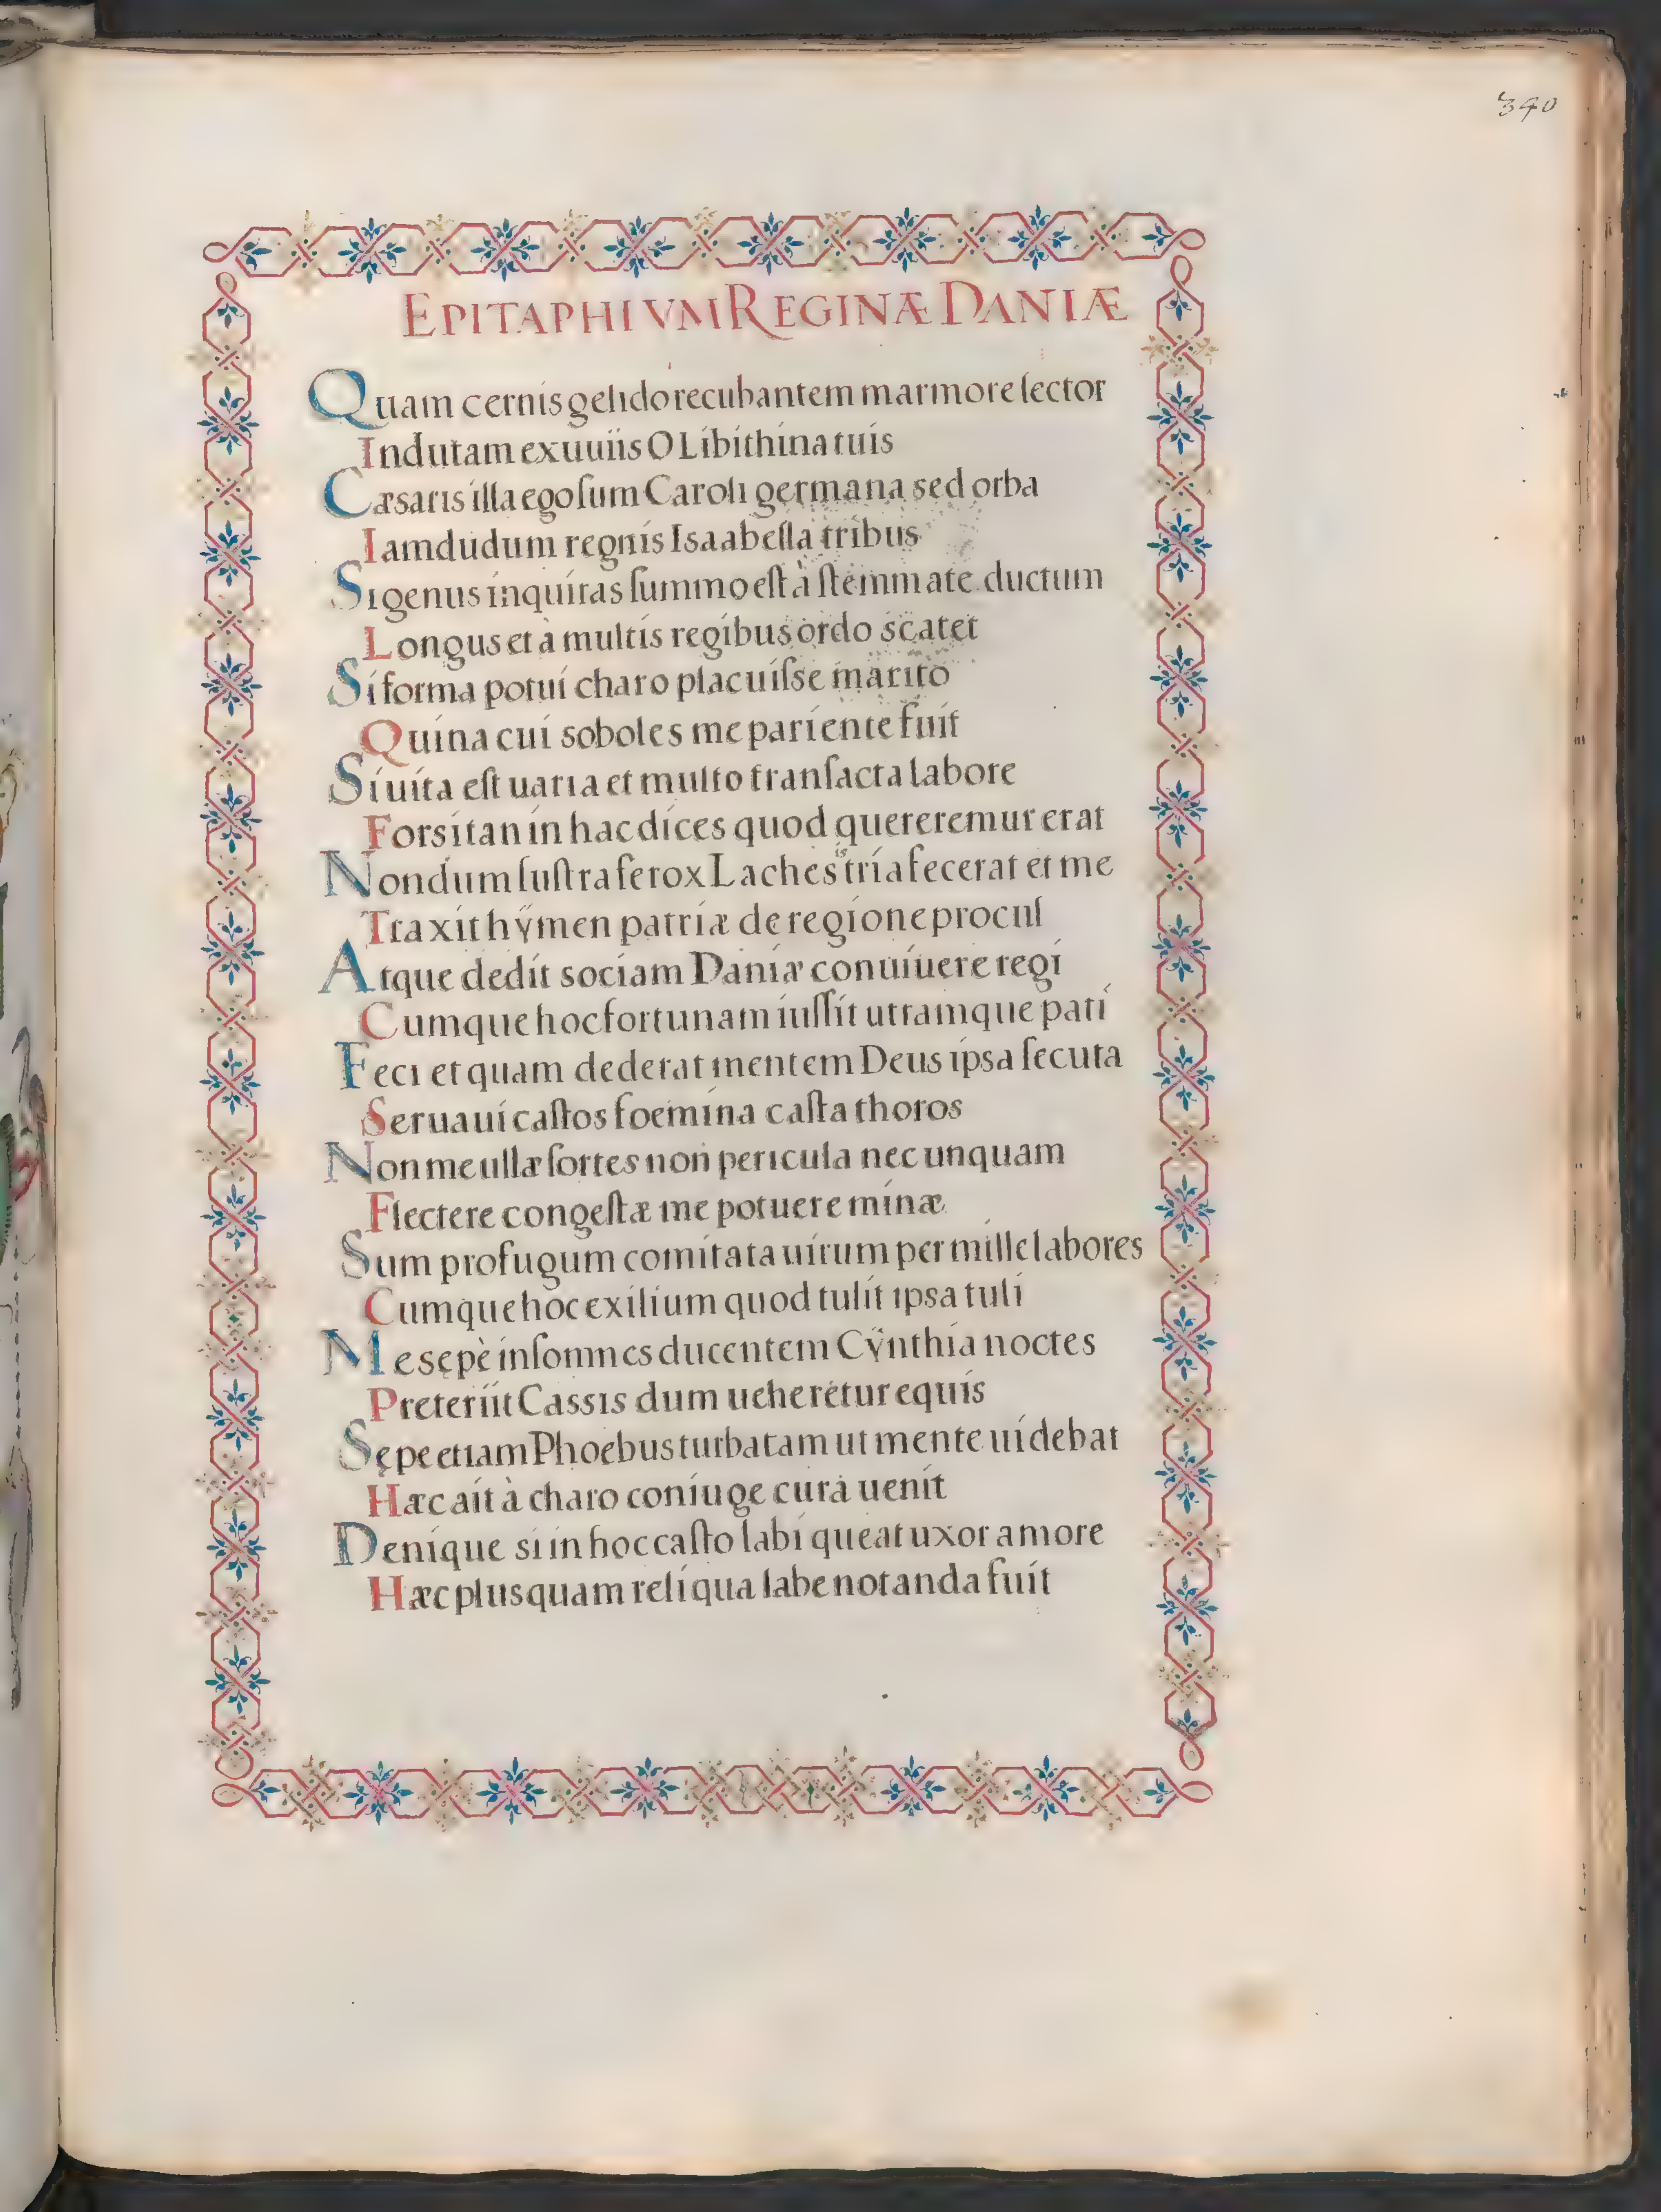 340
EPITAPHIVM REGINÆ DANIÆ
Quam cernis gelido recubantem marmore lector
Indutam exuuiis O Libithina tuis
Cæsaris illa ego ſum Caroli germana sed orba
Iamdudum regnis Isaabeſla tribus
Si genus inquiras ſummo eſt à ſtemmate ductum
Longus et à multis regibus ordo scatet
Si forma potui charo placuiſse marito
Quina cui soboles me pariente fuit
Si uita eſt uaria et multo tranſacta labore
Forsitan in hac dices quod quereremur erat
Nondum luſtra ferox Lachesis tria fecerat et me
Traxit hÿmen patriæ de regione procul
Atque dedit sociam Daniæ conuiuere regi
Cumque hoc fortunam iuſſit utramque pati
Feci et quam dederat mentem Deus ipsa ſecuta
Seruaui caſtos foemina caſta thoros
Non me ullæ ſortes non pericula nec unquam
Flectere congeſtæ me potuere minæ
Sum profugum comitata uirum per mille labores
Cumque hoc exilium quod tulit ipsa tuli
Me sępè inſomnes ducentem Cÿnthia noctes
Preteriit Cassis dum ueheretur equis
Sępe etiam Phoebus turbatam ut mente uidebat
Hæc ait à charo coniuge cura uenit
Denique si in hoc caſto labi queat uxor amore
Hæc plus quam reliqua labe notanda fuit